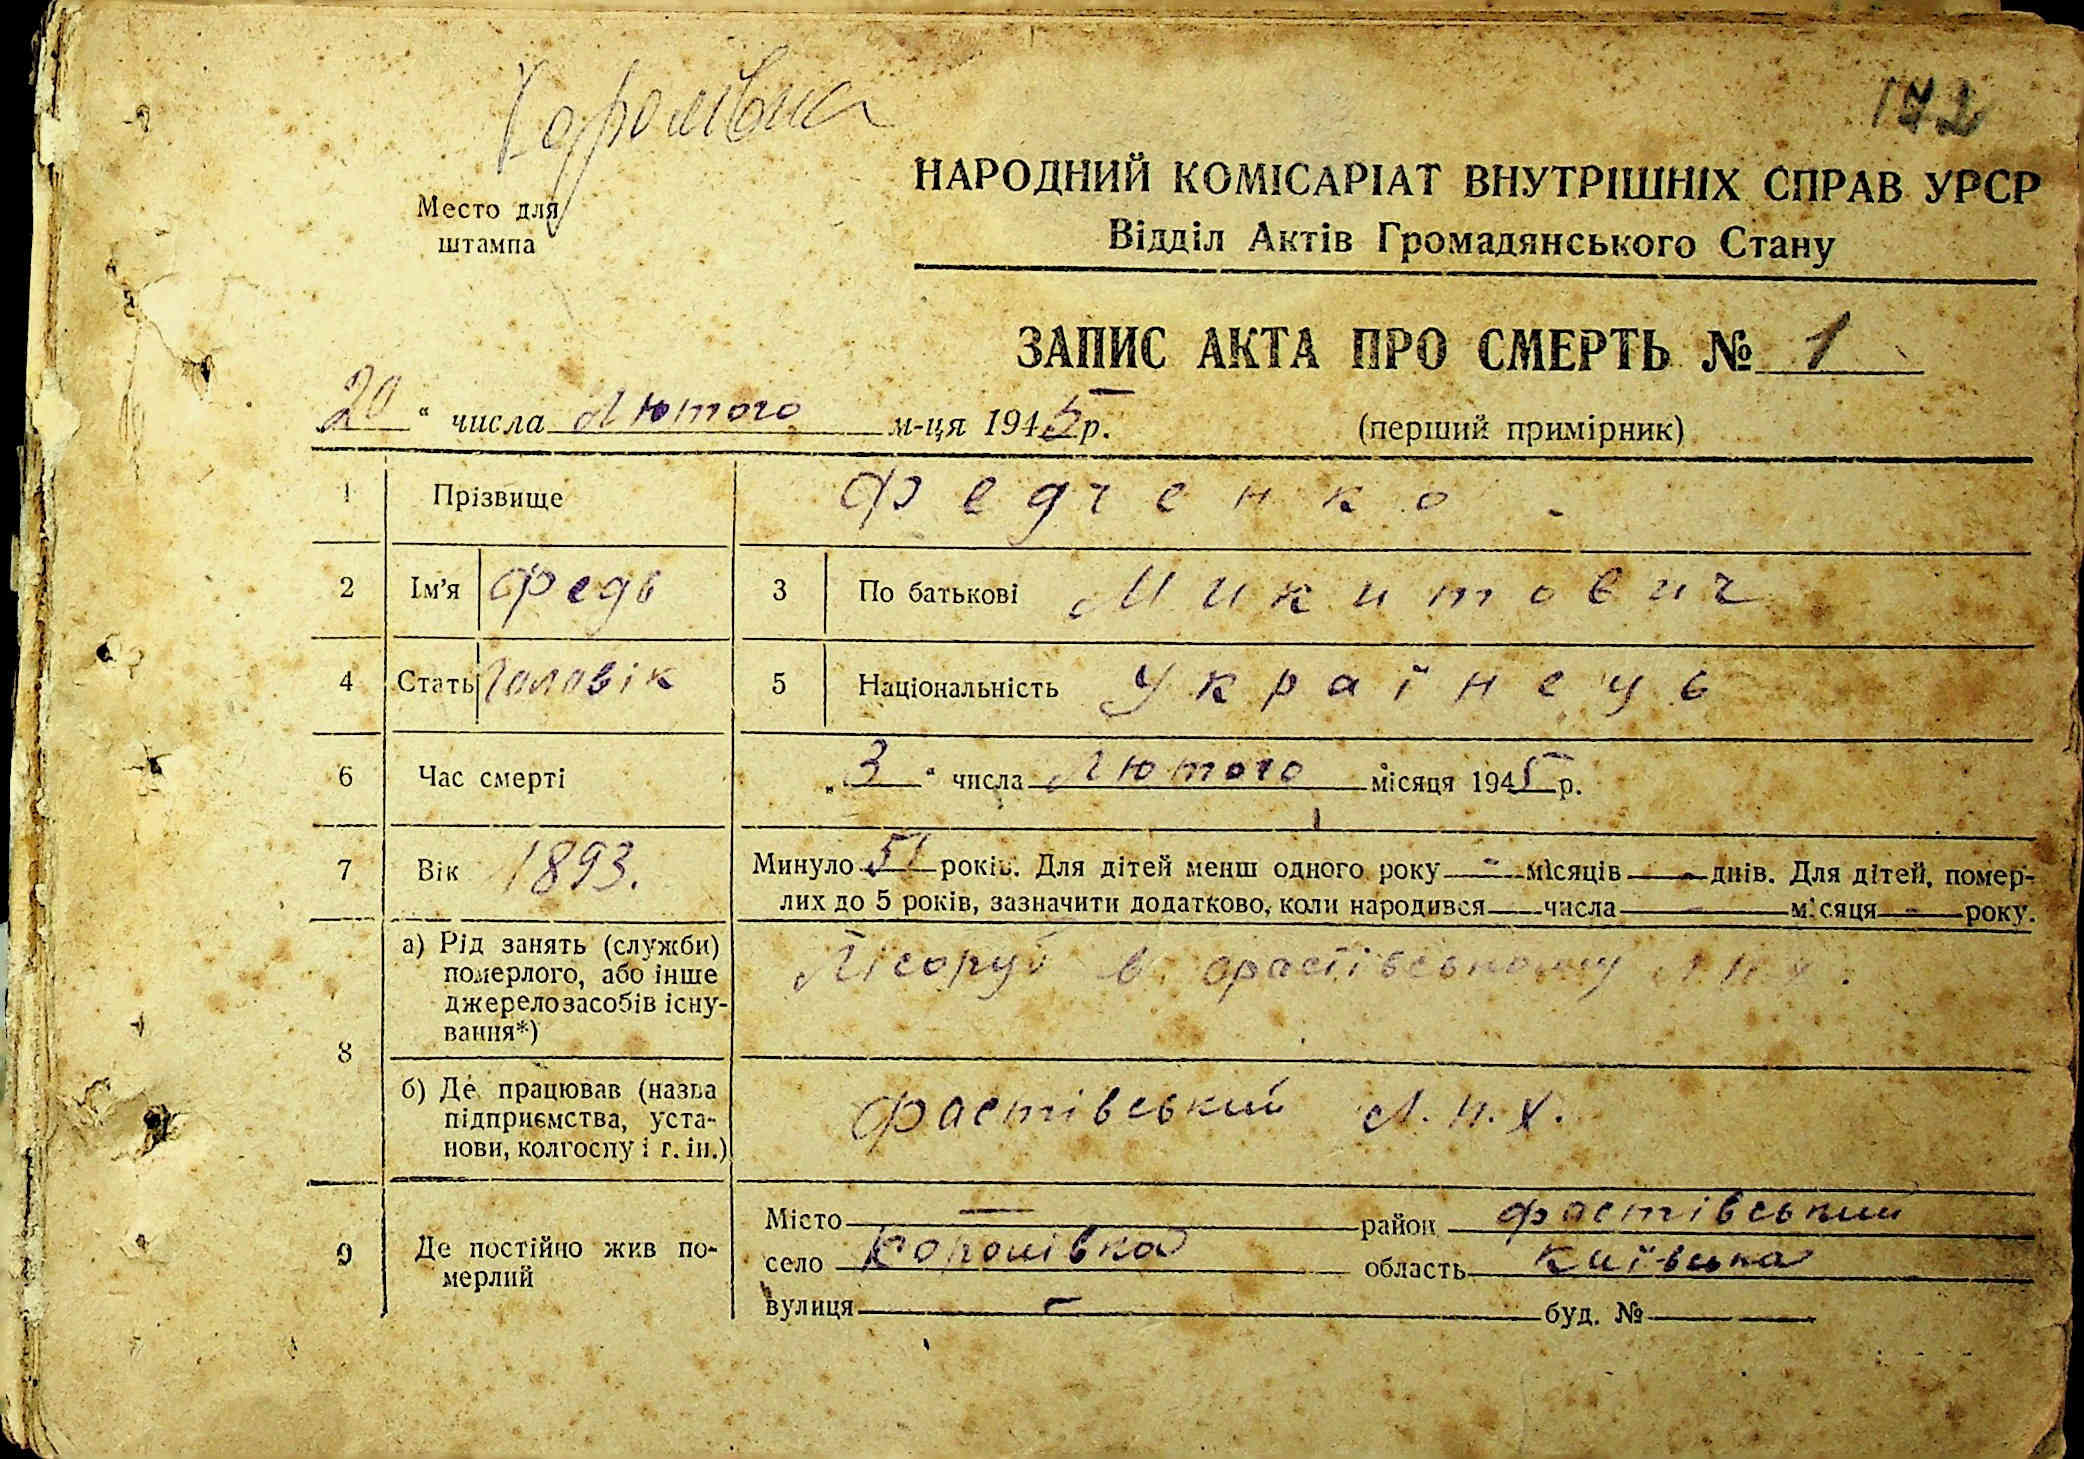 172
Место для
штампа
НАРОДНИЙ КОМІСАРІАТ ВНУТРІШНІХ СПРАВ УРСР
Відділ Актів Громадянського Стану
ЗАПИС АКТА ПРО СМЕРТЬ № 1
20 " числа Лютого м-ця 1945 р. (перший примірник)
1 Прізвище Федченко
2 Ім'я Федь 3 По батькові Микитович
4 Стать Чоловік 5 Національність Українець
6 Час смерті „ 3 " числа Лютого місяця 1945 р.
7 Вік 1893. Минуло 51 років. Для дітей менш одного року - місяців - днів. Для дітей, помер-
лих до 5 років, зазначити додатково, коли народився числа - місяця - року.
8 а) Рід занять (служби)
померлого, або інше
джерело засобів існу-
вання*)
Лісоруб в Фастівському
б) Де працював (назва
підприємства, уста-
нови, колгоспу і г. ін.)
Фастівський Л.п.х.
9 Де постійно жив по-
мерлий
Місто — район Фастівський
село область Київська
вулиця - буд. № —